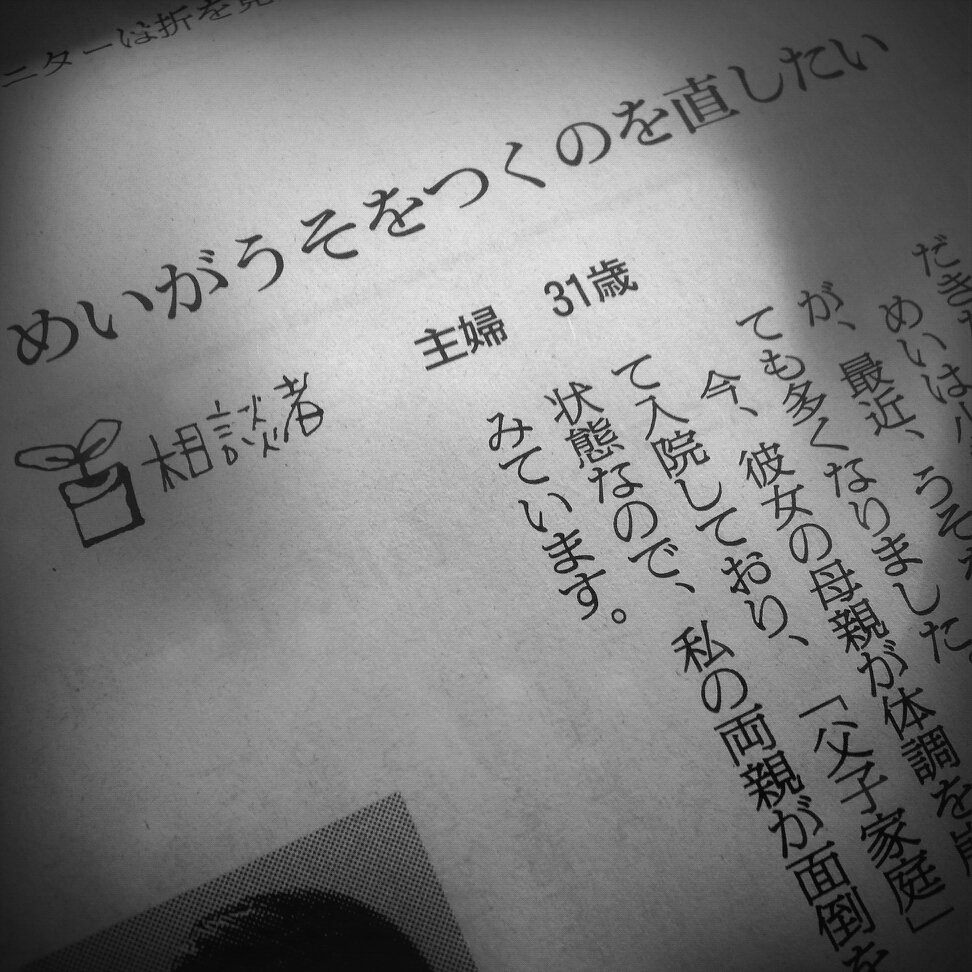 ニターは折を見
めいがうそをつくのを直したい
主婦 31歳
相談者
だき
めいは小
が、最近、うそを
ても多くなりました。
今、彼女の母親が体調を崩
て入院しており、「父子家庭」
状態なので、私の両親が面倒を
みています。